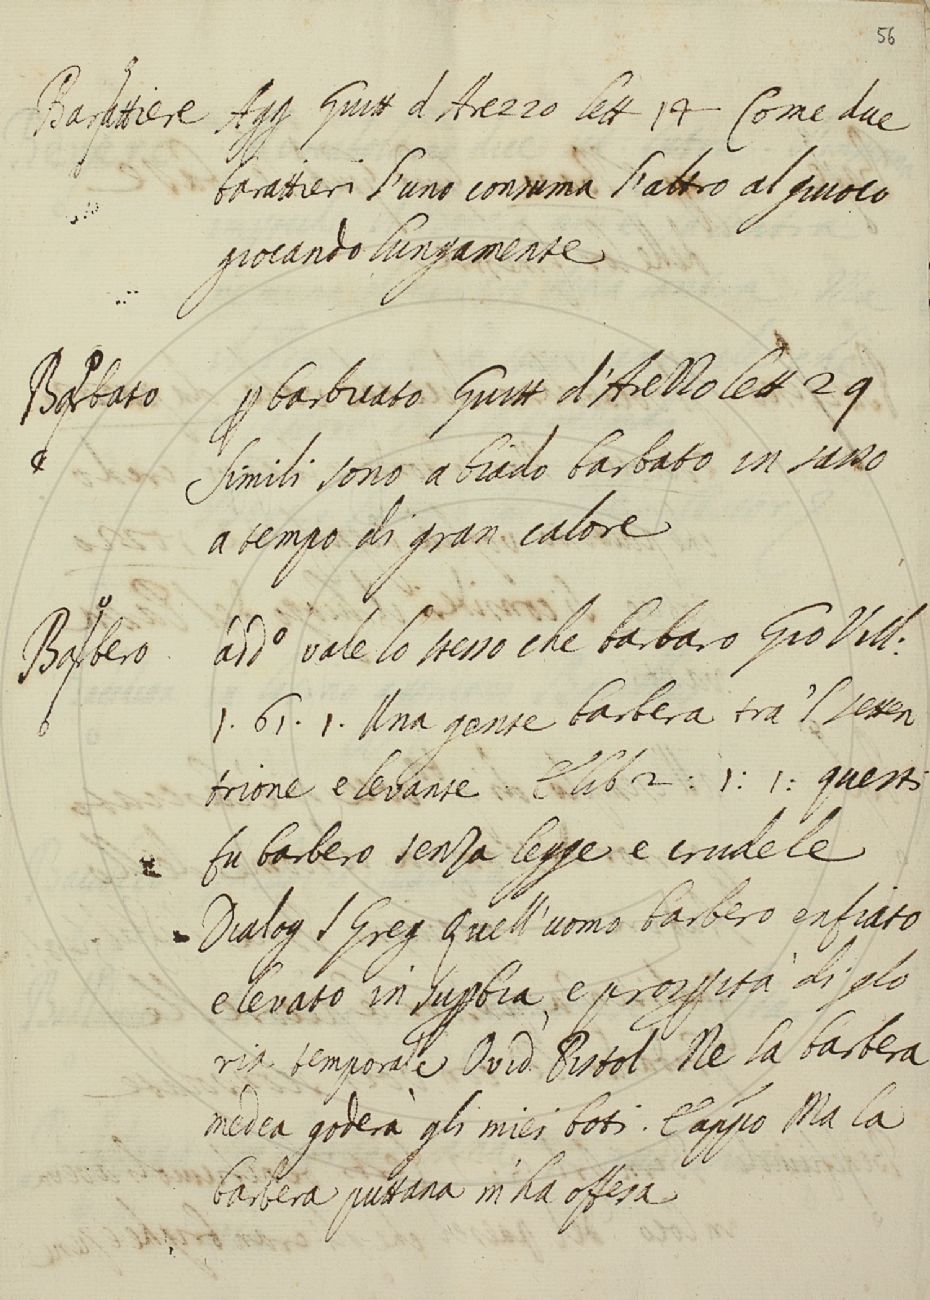 56
Barattiere Agg Guitt d Arezzo lett 14 Come due
barattieri l'uno consuma l'altro al giuoco
giocando lungamente
Barbato p barbuato Guitt d'Arezzo lett 29
simili sono a biado barbato in sasso
a tempo di gran calore
Barbero add.o vale lo stesso che barbaro Gio Vill:
1. 61. 1. Una gente barbera tra 'l setten
trione e levante. E lib 2: 1: 1: questi
fu barbero senza legge e crudele
Dialog S Greg Quell'uomo barbero enfiato
e levato in supbia, e prospità di glo
ria temporale Ovid. Pistol. Ne la barbera
medea goderà gli miei boti. E appo Ma la
barbera puttana m'ha offesa